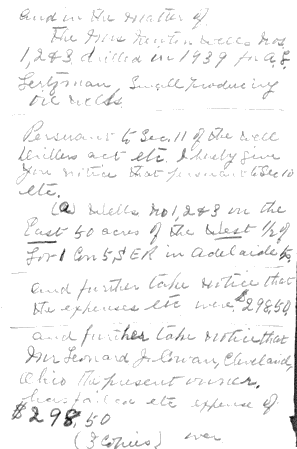 and in the matter of
The Mrs Newton Wells Nos
1, 2 & 3 drilled in 1939 for A. S.
Small Producing
Oil Wells.
Persuant to Sec. 11 of the Well
Drillers act etc. I hereby give
you notice that persuant to Sec 10
etc.
(a) Wells No 1, 2 & 3 on the
East 50 acres of the West 1/2 of
Lot 1 Con 5 S E R in Adelaide
and further take notice that
the expenses etc were $298.50
and further take notice that
Mr Leonard J. Cowan, Cleveland,
Ohio the present owner,
has failed etc expense of
$298.50
(3 Copies) over